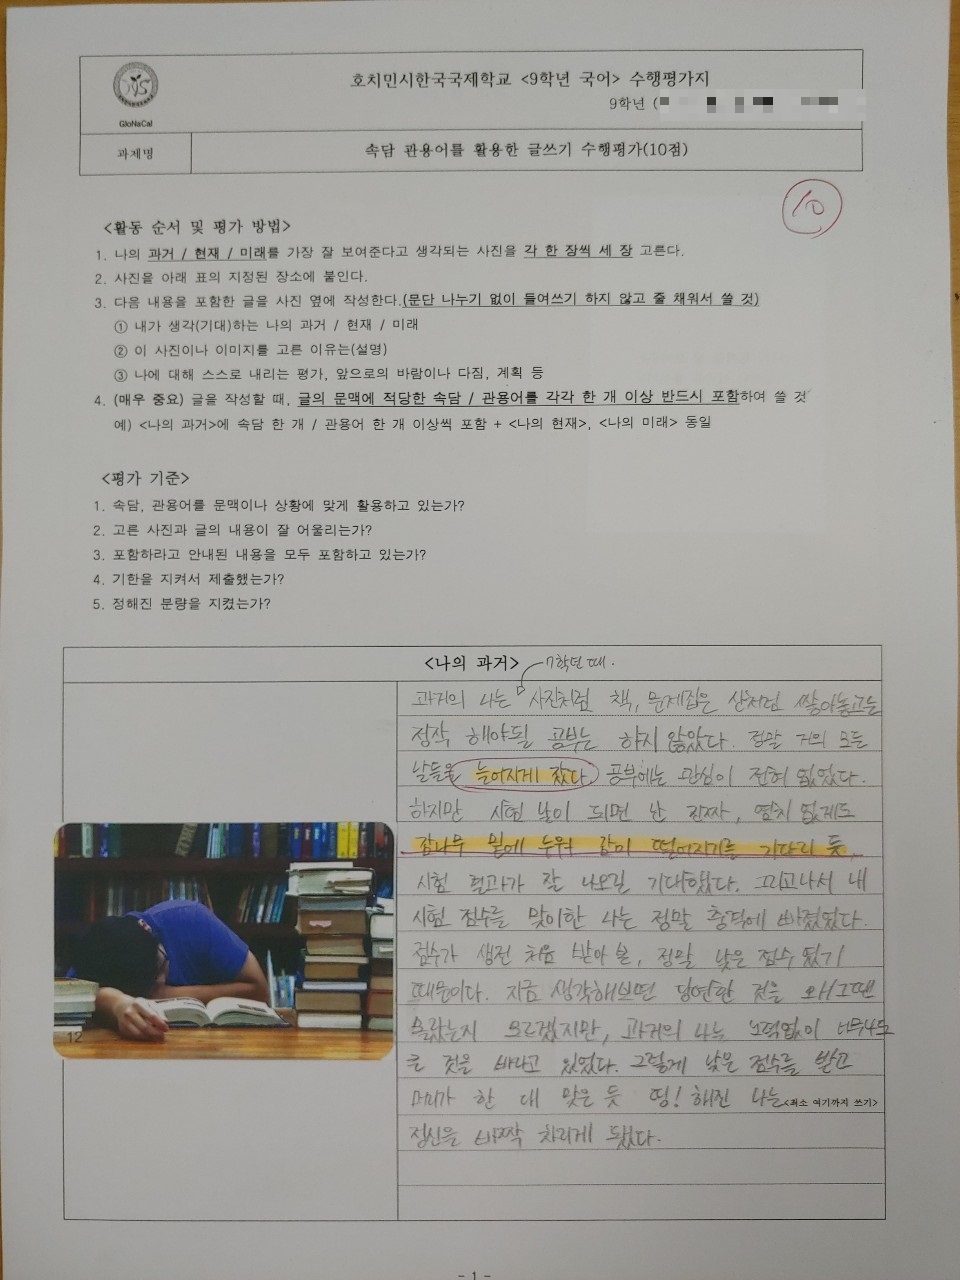 호치민시한국국제학교 <9학년 국어> 수행평가지
9학년 (
GloNaCal
과제명
속담 관용어를 활용한 글쓰기 수행평가(10점)
10
<활동 순서 및 평가 방법>
1. 나의 과거 / 현재 / 미래를 가장 잘 보여준다고 생각되는 사진을 각 한 장씩 세 장 고른다.
2. 사진을 아래 표의 지정된 장소에 붙인다.
3. 다음 내용을 포함한 글을 사진 옆에 작성한다.(문단 나누기 없이 들여쓰기 하지 않고 줄 채워서 쓸 것)
① 내가 생각(기대)하는 나의 과거 / 현재 / 미래
② 이 사진이나 이미지를 고른 이유는(설명)
③ 나에 대해 스스로 내리는 평가, 앞으로의 바람이나 다짐, 계획 등
4. (매우 중요) 글을 작성할 때, 글의 문맥에 적당한 속담 / 관용어를 각각 한 개 이상 반드시 포함하여 쓸 것
예) <나의 과거>에 속담 한 개 / 관용어 한 개 이상씩 포함 + <나의 현재>, <나의 미래> 동일
<평가 기준>
1. 속담, 관용어를 문맥이나 상황에 맞게 활용하고 있는가?
2. 고른 사진과 글의 내용이 잘 어울리는가?
3. 포함하라고 안내된 내용을 모두 포함하고 있는가?
4. 기한을 지켜서 제출했는가?
5. 정해진 분량을 지켰는가?
<나의 과거>
7학년 때.
과거의 나는 사진처럼 책, 문제집은 산처럼 쌓아놓고는
정작 해야될 공부는 하지 않았다. 정말 거의 모든
날들을 늘어지게 잤다. 공부에는 관심이 전혀 없었다.
하지만 시험 날이 되면 난 진짜, 염치 없게도
감나무 밑에 누워 감이 떨어지기를 기다리 듯,
시험 결과가 잘 나오길 기대했다. 그리고나서 내
시험 점수를 맞이한 나는 정말 충격에 빠졌었다.
점수가 생전 처음 받아 본, 정말 낮은 점수 였기
때문이다. 지금 생각해보면 당연한 것을 왜 그땐
몰랐는지 모르겠지만, 과거의 나는 노력없이 너무너무
큰 것을 바라고 있었다. 그렇게 낮은 점수를 받고
머리가 한 대 맞은 듯 띵! 해진 나는<최소 여기까지 쓰기>
정신을 바짝 차리게 됐다.
12
- 1 -